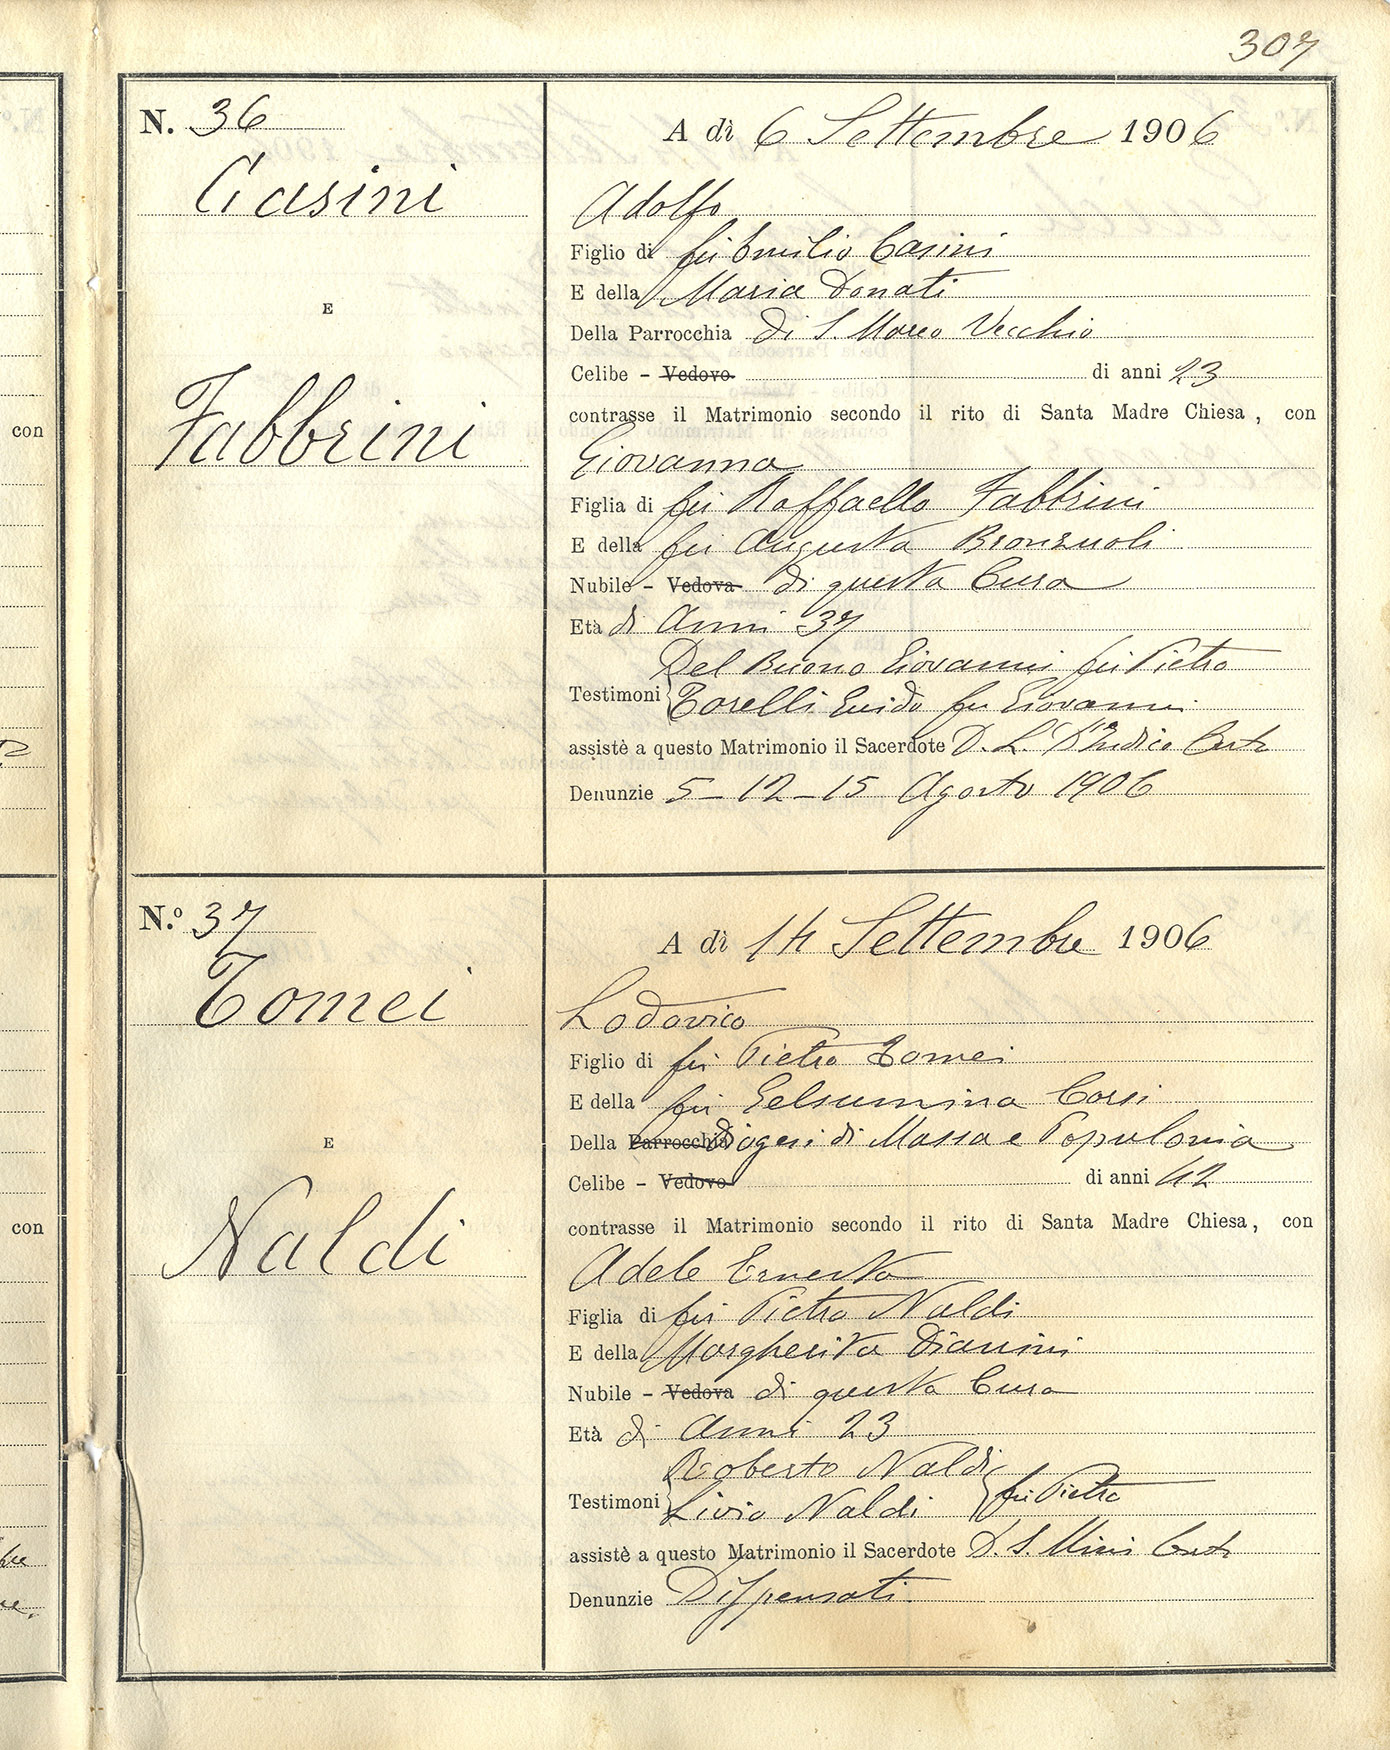 307
N. 36
Casini
E
Fabbrini
A dì 6 Settembre 1906
Adolfo
Figlio di fu Emilio Casini
E della Maria Donati
Della Parrocchia di S. Marco Vecchio
Celibe - Vedovo di anni 23
contrasse il Matrimonio secondo il rito di Santa Madre Chiesa, con
Giovanna
Figlia di fu Raffaello Fabbrini
E della fu Augusta Bronzuoli
Nubile - Vedova di questa Cura
Età di Anni 37
Del Buono Giovanni fu Pietro
Testimoni Torelli Guido fu Giovanni
assistè a questo Matrimonio il Sacerdote D. L. Del Medico
Denunzie 5 - 12 - 15 Agosto 1906
N.º 37
Tomei
E
Naldi
A dì 14 Settembre 1906
Lodovico
Figlio di fu Pietro Tomei
E della fu Gelsumina Corsi
Della Parrocchia Diogesi di Massa e Populonia
Celibe - Vedovo di anni 42
contrasse il Matrimonio secondo il rito di Santa Madre Chiesa, con
Adele Ernesta
Figlia di fu Pietro Naldi
E della Margherita Giannini
Nubile - Vedova di questa Cura
Età di Anni 23
Roberto Naldi
Testimoni Livio Naldi fu Pietro
assistè a questo Matrimonio il Sacerdote D. S. Mini
Denunzie Dispensati.
con
con